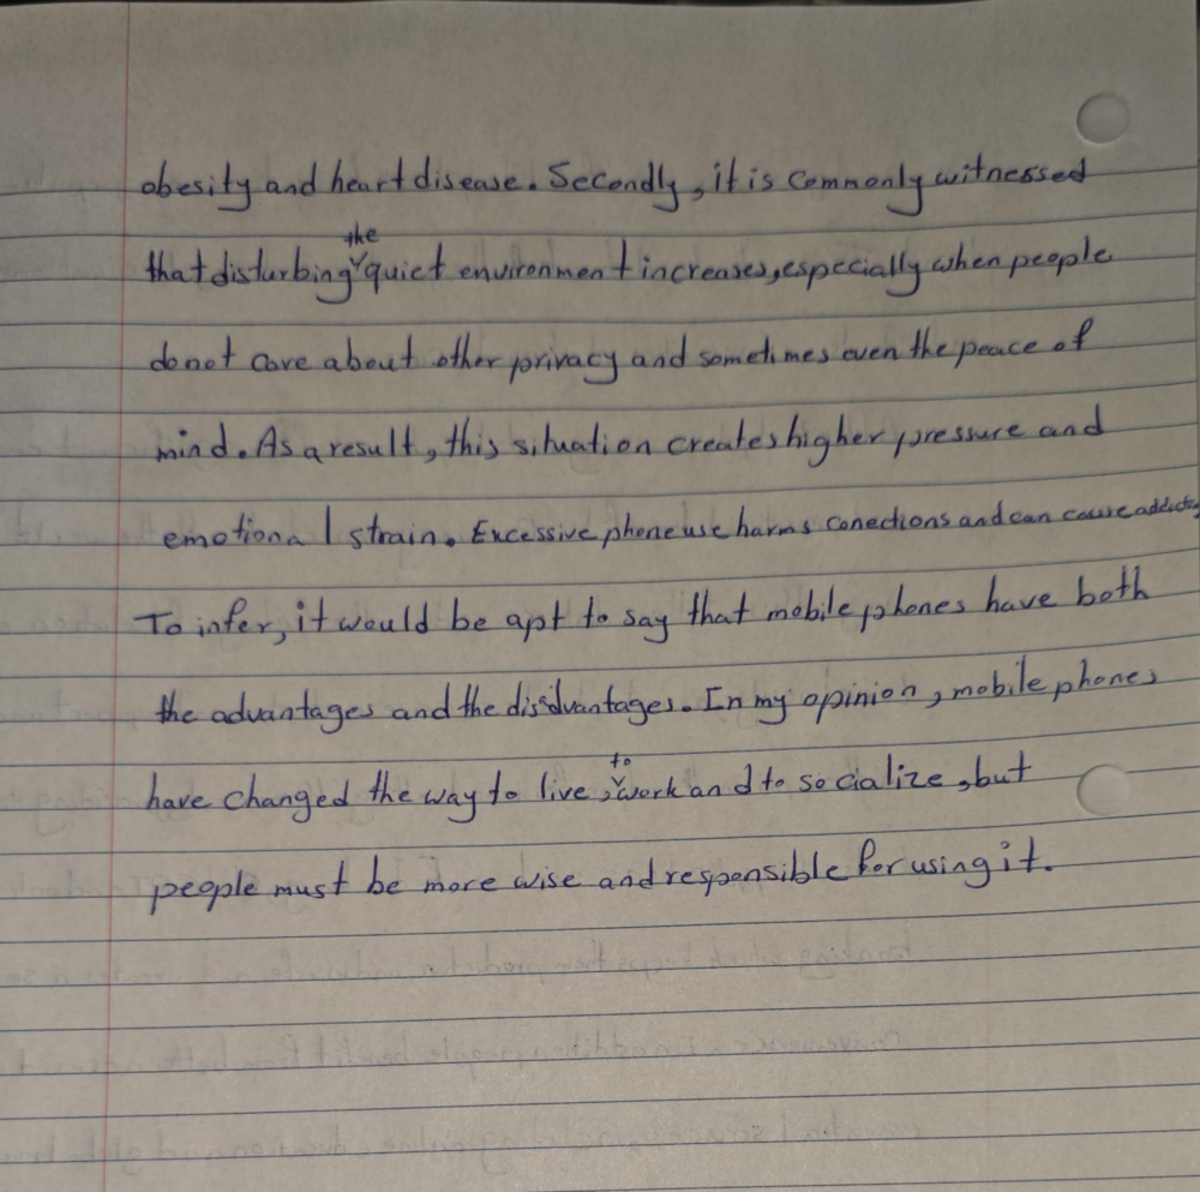 obesity and heart disease. Secondly, it is commonly witnessed
that disturbing the quiet environment increases, especially when people
do not care about other privacy and sometimes even the peace of
mind. As a result, this situation creates higher pressure and
emotional strain. Excessive phone use harms conections and can cause
To infer, it would be apt to say that mobile phones have both
the advantages and the disadvantages. In my opinion, mobile phones
have changed the way to live, to work and to socialize, but
people must be more wise and responsible for using it.